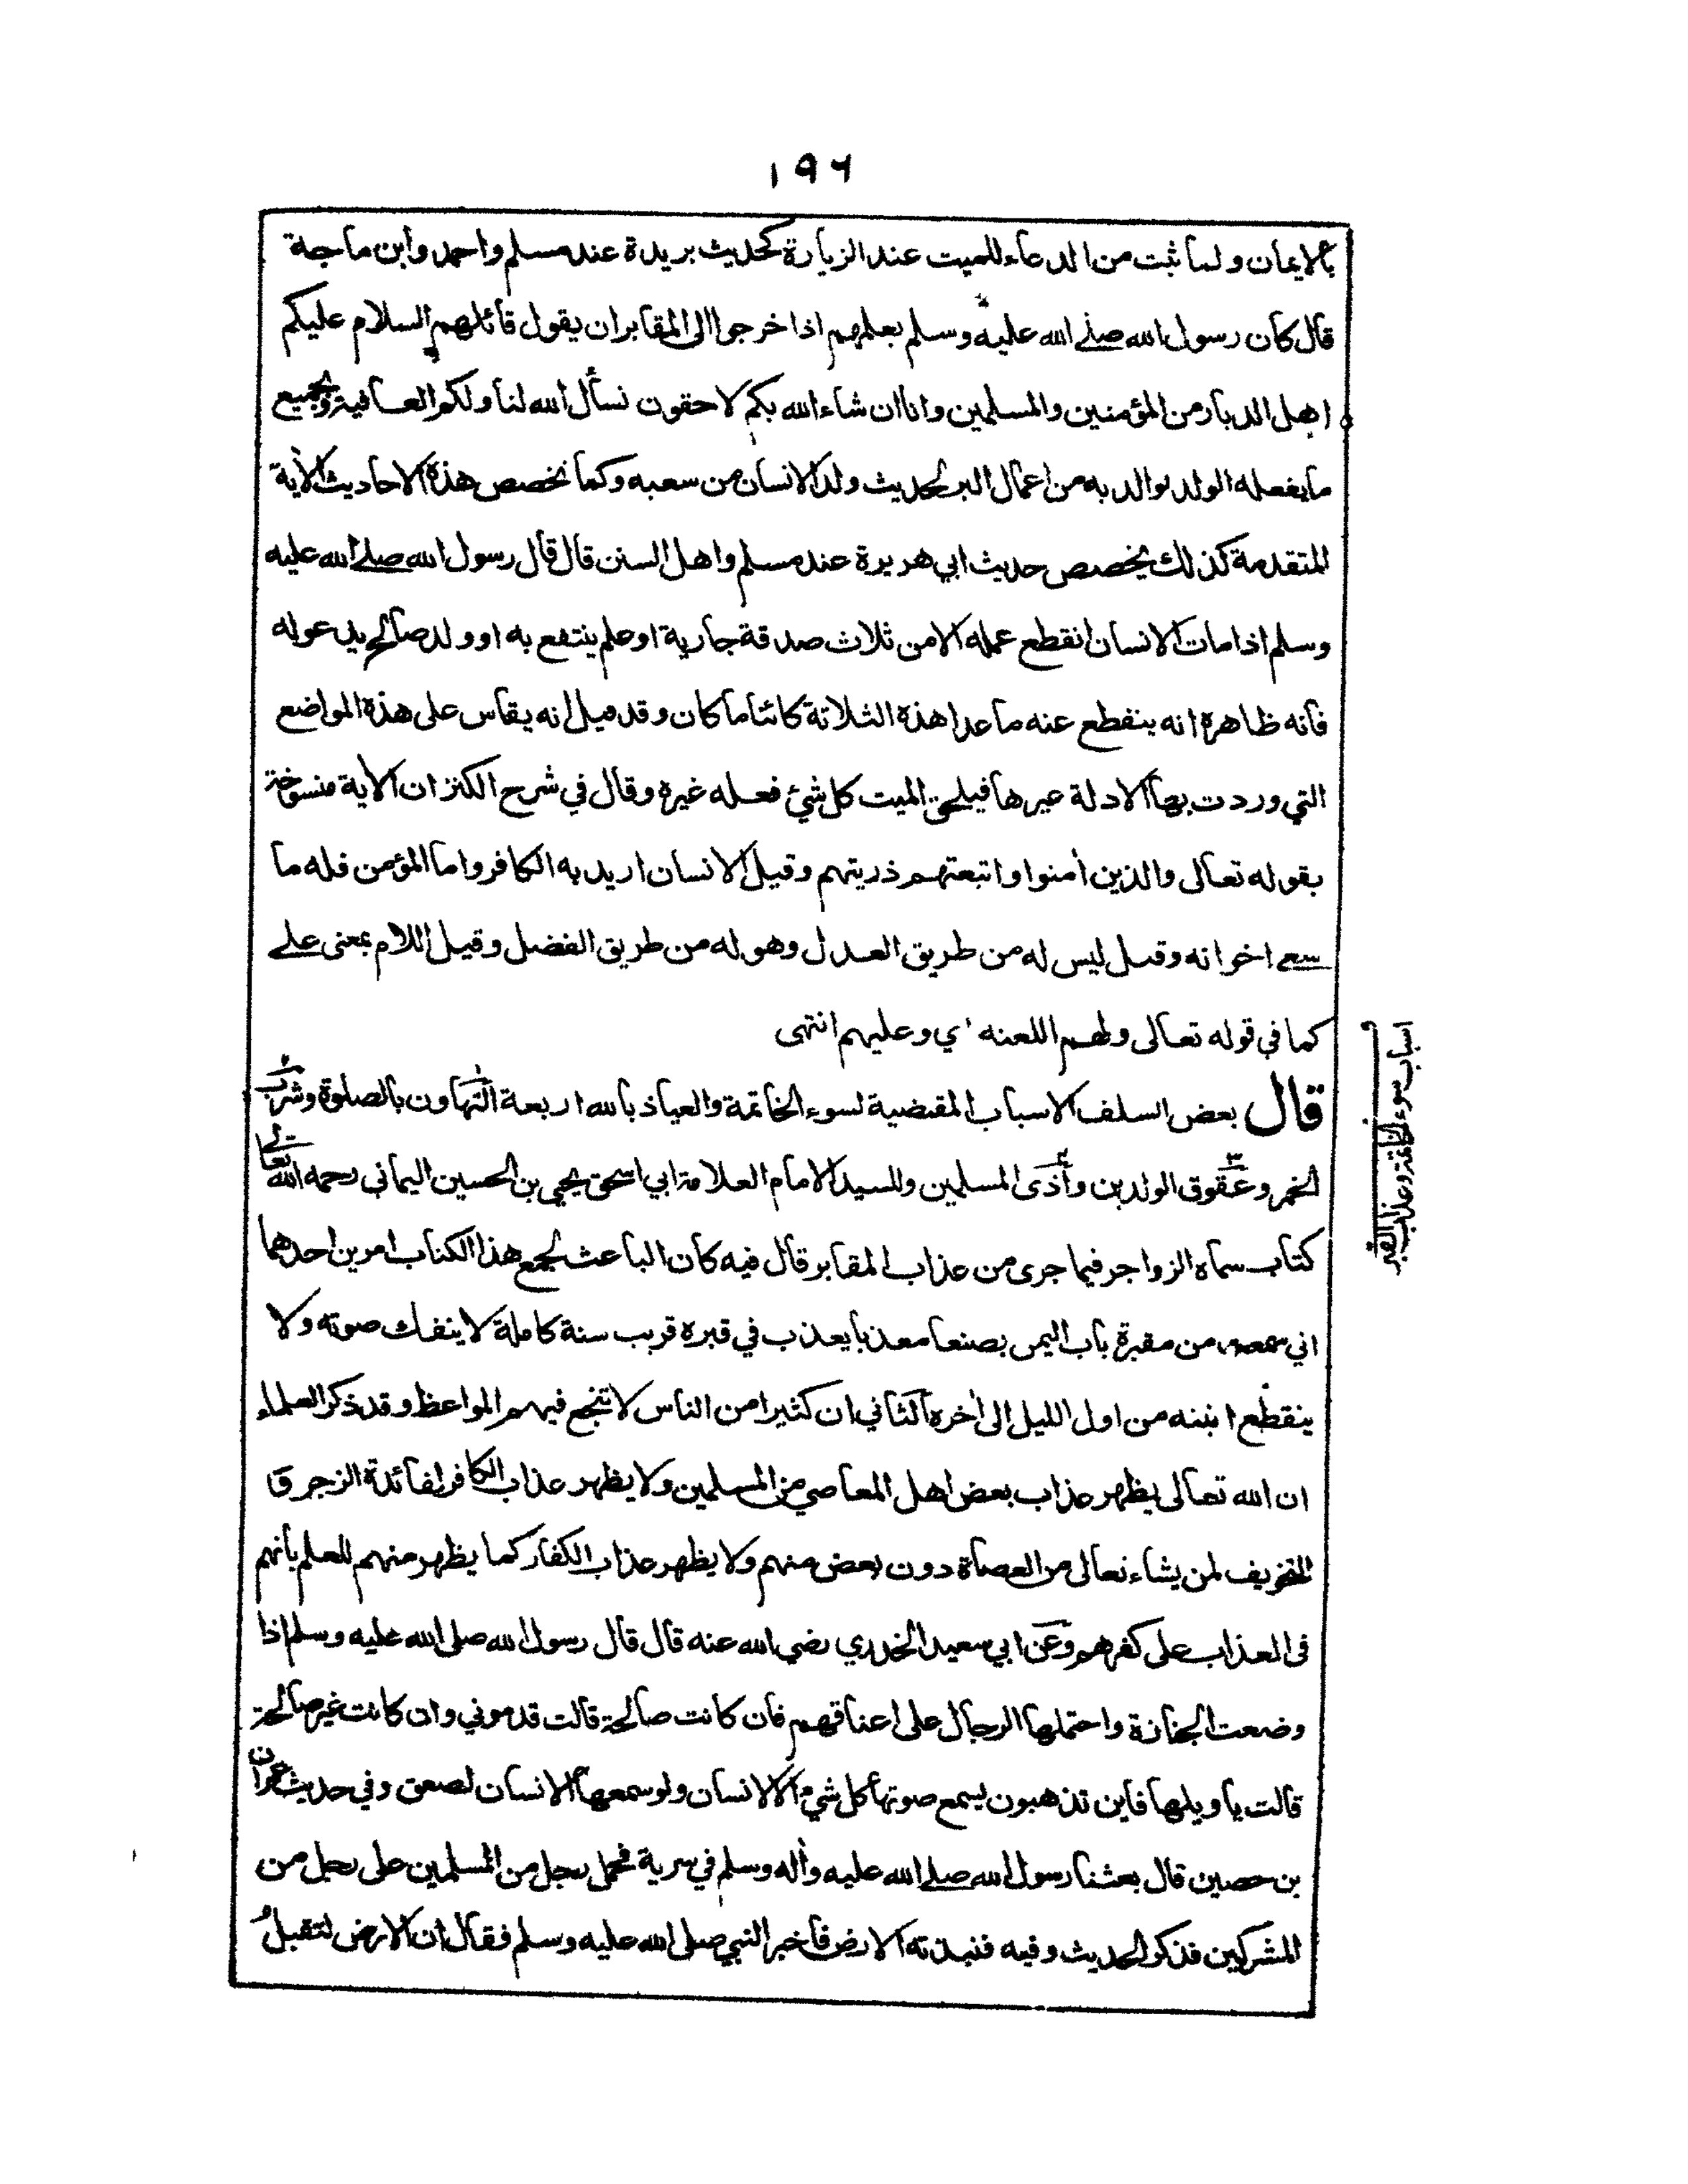 ١٩٦
بالايمان ولما ثبت من الدعاء للميت عند الزيارة كحديث بريدة عند مسلم واحمد وابن ماجة
قال كان رسول الله صلے الله عليه وسلم يعلمهم اذا خرجوا الى المقابر ان يقول قائلهم السلام عليكم
اهل الديار من المؤمنين والمسلمين وانا ان شاء الله بكم لاحقون نسأل الله لنا ولكم العافية وبجميع
ما يفعله الولد لوالديه من اعمال البر لحديث ولد الانسان من سعيه وكما تخصص هذه الاحاديث الآية
المتقدمة كذلك يخصص حديث ابي هريرة عند مسلم واهل السنن قال قال رسول الله صلے الله عليه
وسلم اذا مات الانسان انقطع عمله الا من ثلاث صدقة جارية او علم ينتفع به او ولد صالح يدعو له
فانه ظاهره انه ينقطع عنه ما عدا هذه الثلاثة كائنا ما كان وقد قيل انه يقاس على هذه المواضع
التي وردت بها الادلة غيرها فيلحق الميت كل شئ فعله غيره وقال في شرح الكنز ان الآية منسوخة
بقوله تعالى والذين اٰمنوا واتبعتهم ذريتهم وقيل الانسان اريد به الكافر واما المؤمن فله ما
سعے اخوانه وقيل ليس له من طريق العدل وهو له من طريق الفضل وقيل اللام بمعنى علے
كما في قوله تعالى ولهم اللعنه اي وعليهم انتهى
قال بعض السلف الاسباب المقتضية لسوء الخاتمة والعياذ بالله اربعة التهاون بالصلوة وشرب
الخمر وعقوق الوالدين وأذى المسلمين وللسيد الامام العلامة ابي اسحق يحيى بن الحسين اليماني رحمه الله تعالے
كتاب سماه الزواجر فيما جرى من عذاب المقابر قال فيه كان الباعث لجمع هذا الكتاب امرين احدهما
اني سمعت من مقبرة باب اليمن بصنعا معذبا يعذب في قبره قريب سنة كاملة لا ينفك صوته ولا
ينقطع انينه من اول الليل الى اٰخره الثاني ان كثيرا من الناس لا تنجع فيهم المواعظ وقد ذكر العلماء
ان الله تعالى يظهر عذاب بعض اهل المعاصي من المسلمين ولا يظهر عذاب الكافر لفائدة الزجر و
التخويف لمن يشاء تعالى من العصاة دون بعض منهم ولا يظهر عذاب الكفار كما يظهر منهم للعلم بأنهم
فى العذاب على كفرهم وعن ابي سعيد الخدري رضي الله عنه قال قال رسول الله صلى الله عليه وسلم اذا
وضعت الجنازة واحتملها الرجال على اعناقهم فان كانت صالحة قالت قدموني وان كانت غير صالحة
قالت يا ويلها فاين تذهبون يسمع صوتها كل شيء الا الانسان ولو سمعها الانسان لصعق وفي حديث عمران
بن حصين قال بعثنا رسول الله صلے الله عليه واٰله وسلم في سرية فحمل رجل من المسلمين على رجل من
المشركين فذكر الحديث وفيه فنبذته الارض فأخبر النبي صلى الله عليه وسلم فقال ان الارض لتقبل
اسباب سوء الخاتمة وعذاب القبر